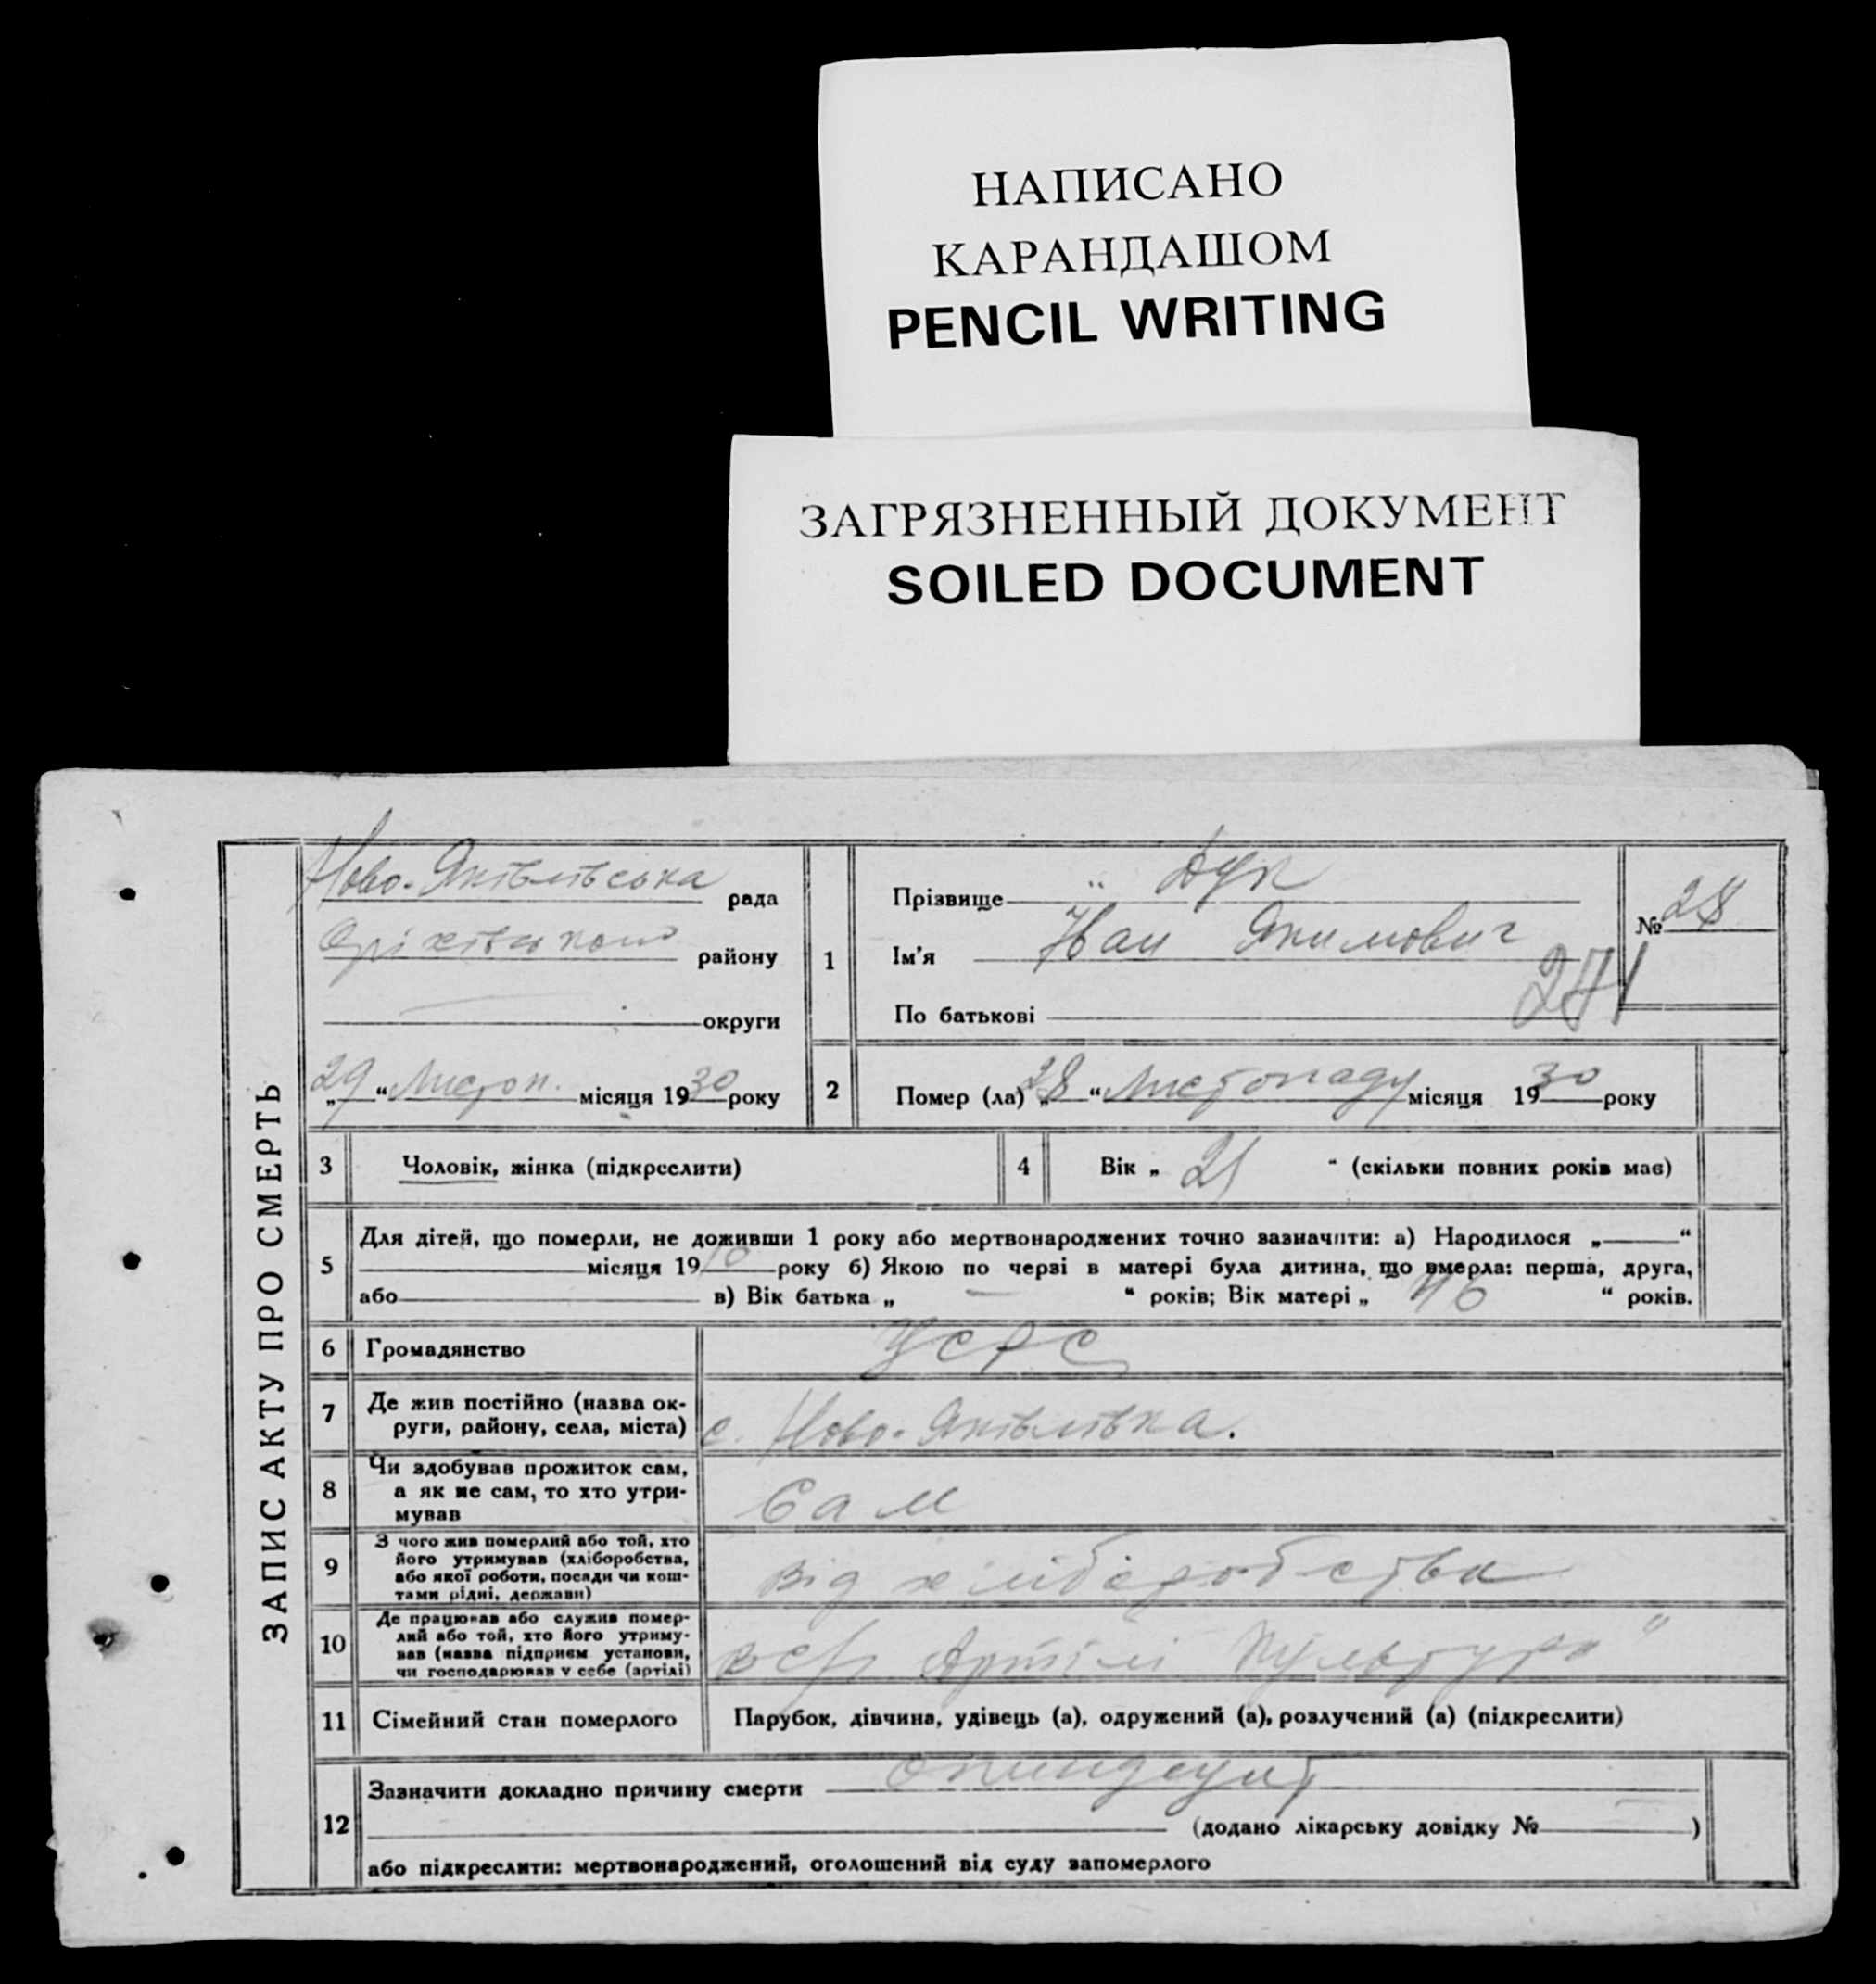 НАПИСАНО
КАРАНДАШОМ
PENCIL WRITING
ЗАГРЯЗНЕННЫЙ ДОКУМЕНТ
SOILED DOCUMENT
ЗАПИС АКТУ ПРО СМЕРТЬ
Ново-Яківлівська рада
Оріхівського району
округи
„29“ Листоп. місяця 1930 року
1
Прізвище
Ім'я Якимович
По батькові
№ 28
271
2 Помер (ла) „28“ Листопаду місяця 1930 року
3 Чоловік, жінка (підкреслити)
4 Вік „ 21 “ (скільки повних років має)
5 Для дітей, що померли, не доживши 1 року або мертвонароджених точно зазначити: а) Народилося „ “
місяця 1910 року б) Якою по черзі в матері була дитина, що вмерла: перша, друга,
або в) Вік батька „ — “ років; Вік матері „ 46 “ років.
6 Громадянство УСРС
7 Де жив постійно (назва ок-
руги, району, села, міста) с. Ново-Яківлівка.
8 Чи здобував прожиток сам,
а як не сам, то хто утри-
мував
Сам
9 З чого жив померлий або той, хто
його утримував (хліборобства,
або якої роботи, посади чи кош-
тами рідні, держави)
Від хліборобства
10 Де працював або служив помер-
лий або той, хто його утриму-
вав (назва підприєм установи,
чи господарював у себе (артілі)
Артілі Культура"
11 Сімейний стан померлого Парубок, дівчина, удівець (а), одружений (а), розлучений (а) (підкреслити)
12 Зазначити докладно причину смерти
(додано лікарську довідку № — )
або підкреслити: мертвонароджений, оголошений від суду запомерлого